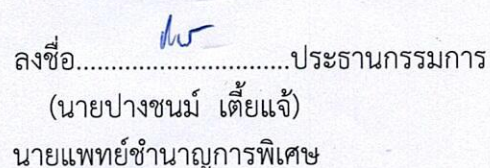 ลงชื่อ.................................ประธานกรรมการ
(นายปางชนม์ เตี้ยแจ้)
นายแพทย์ชำนาญการพิเศษ